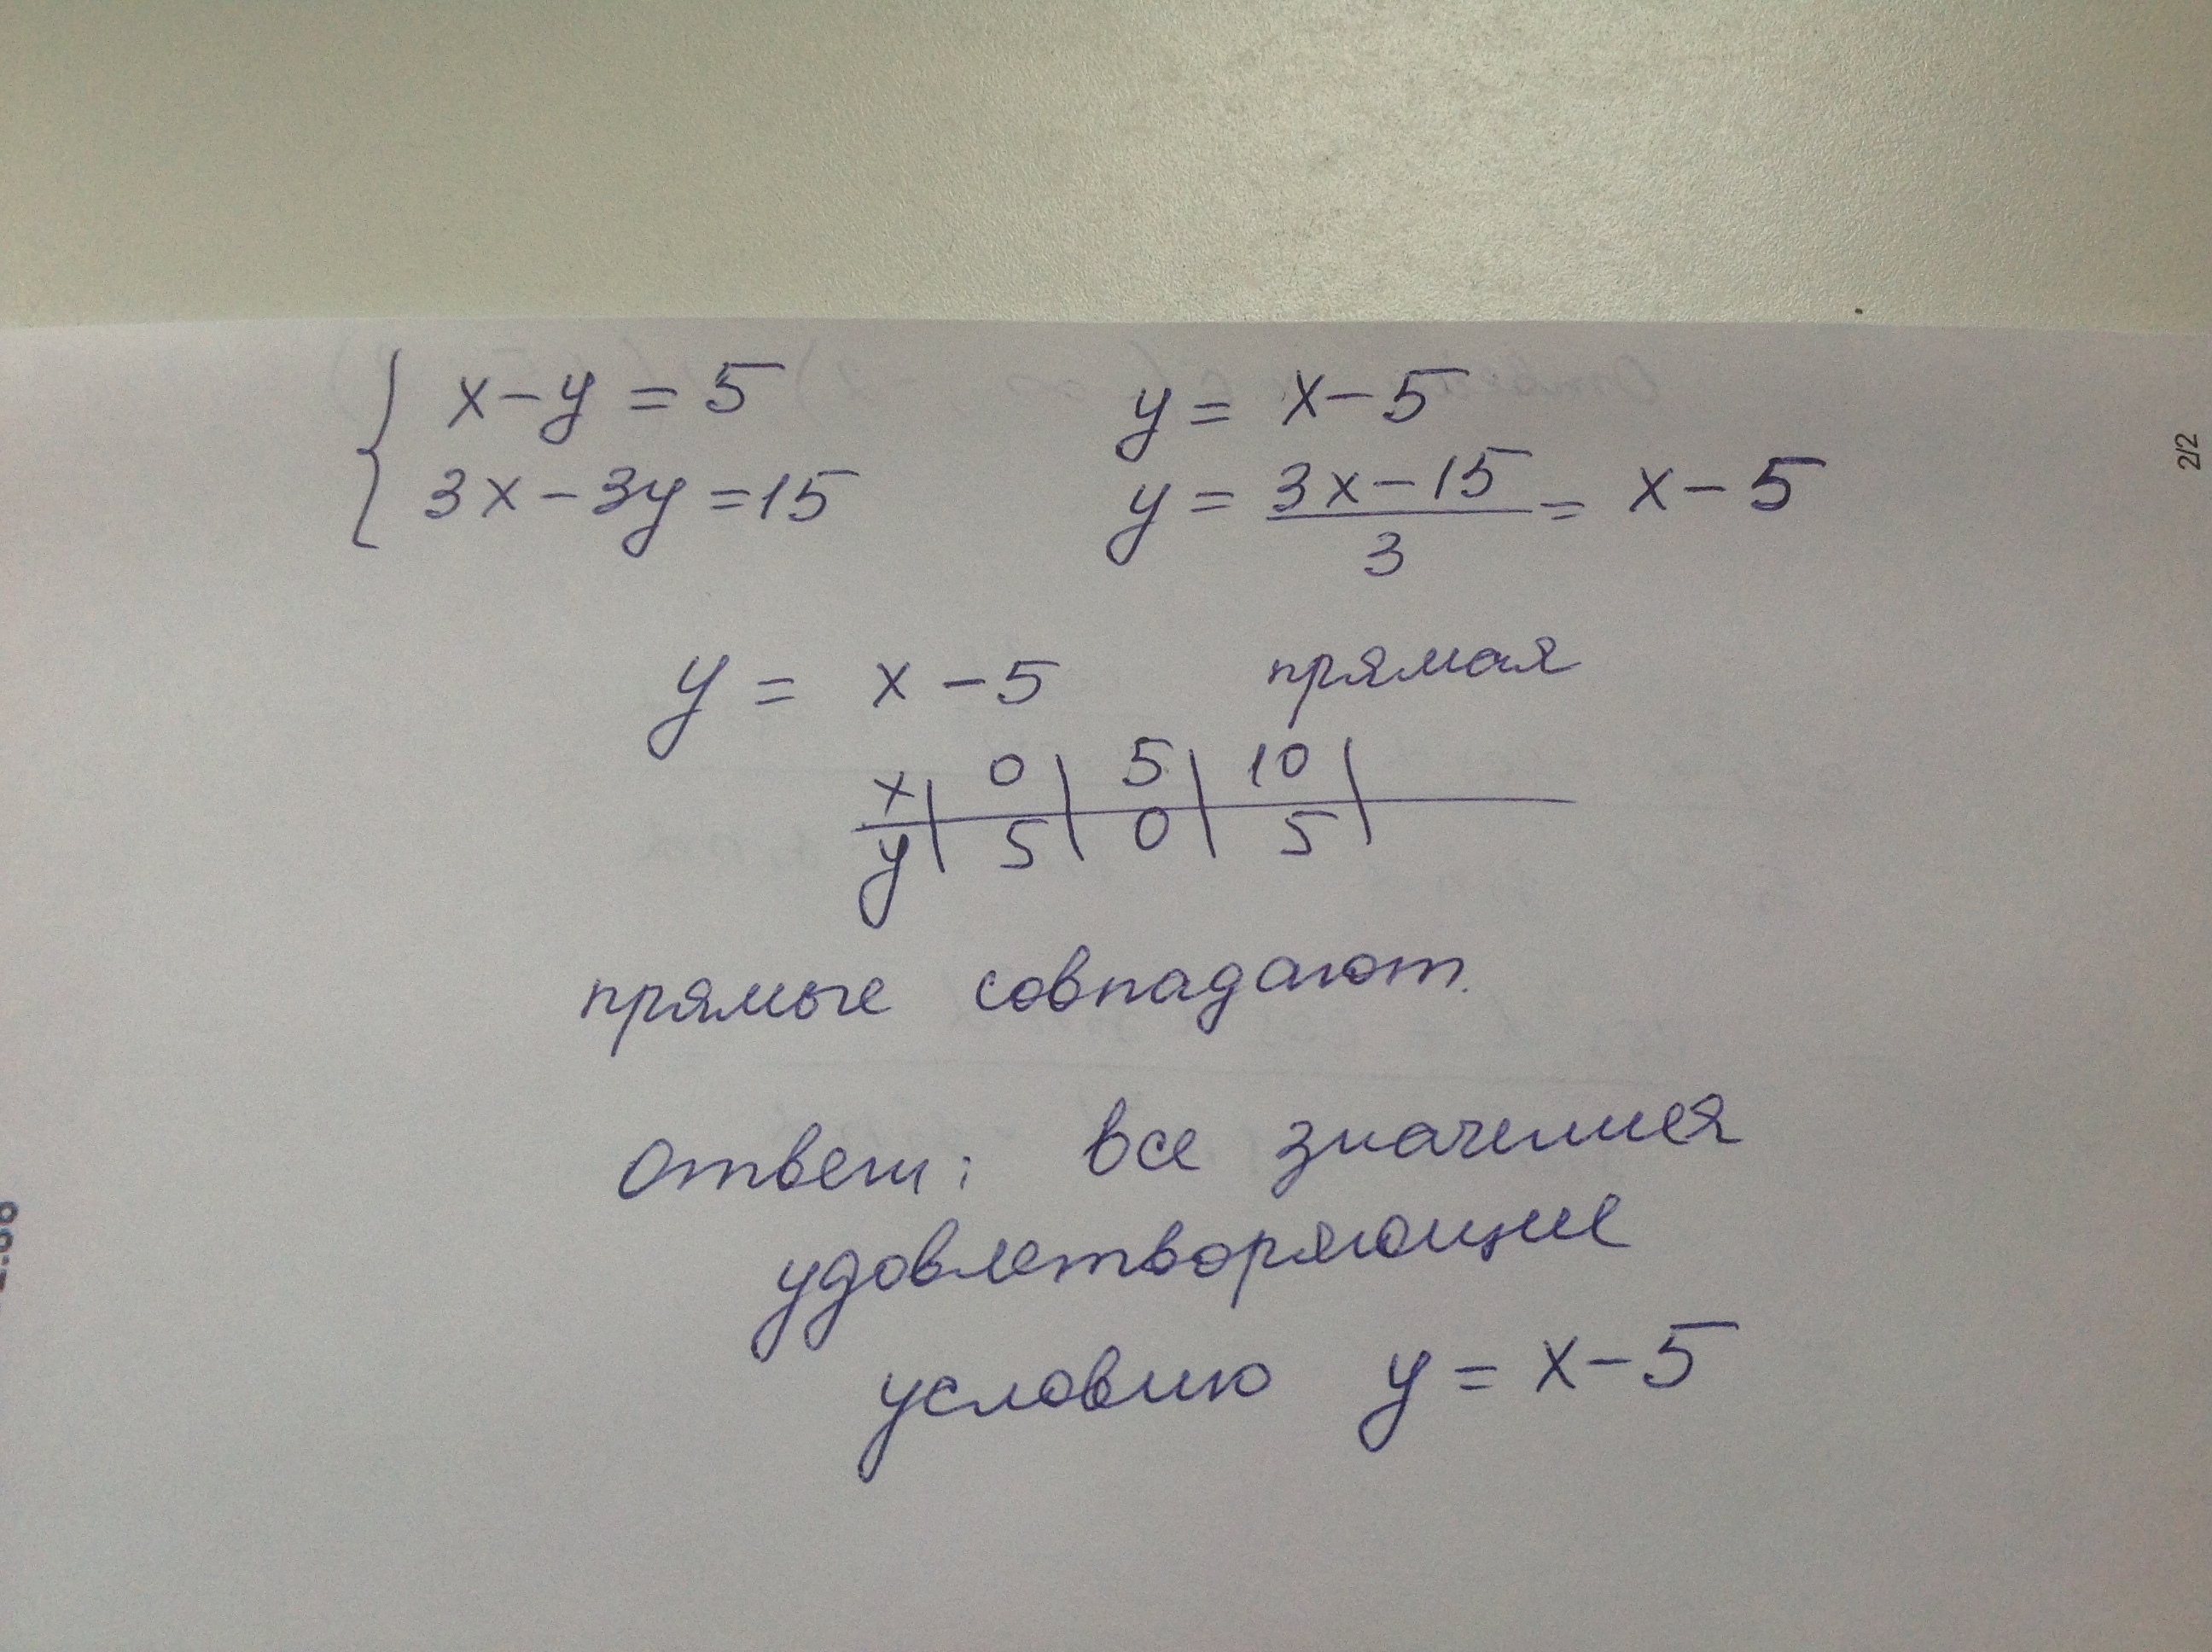 x-y=5 y=x-5
3x-3y=15 y=3x-15/3=x-5
y=x-5 прямая
x 0 5 10
y 5 0 5
прямые совпадают.
Ответ: все значения
удовлетворяющие
условию y=x-5
2/2